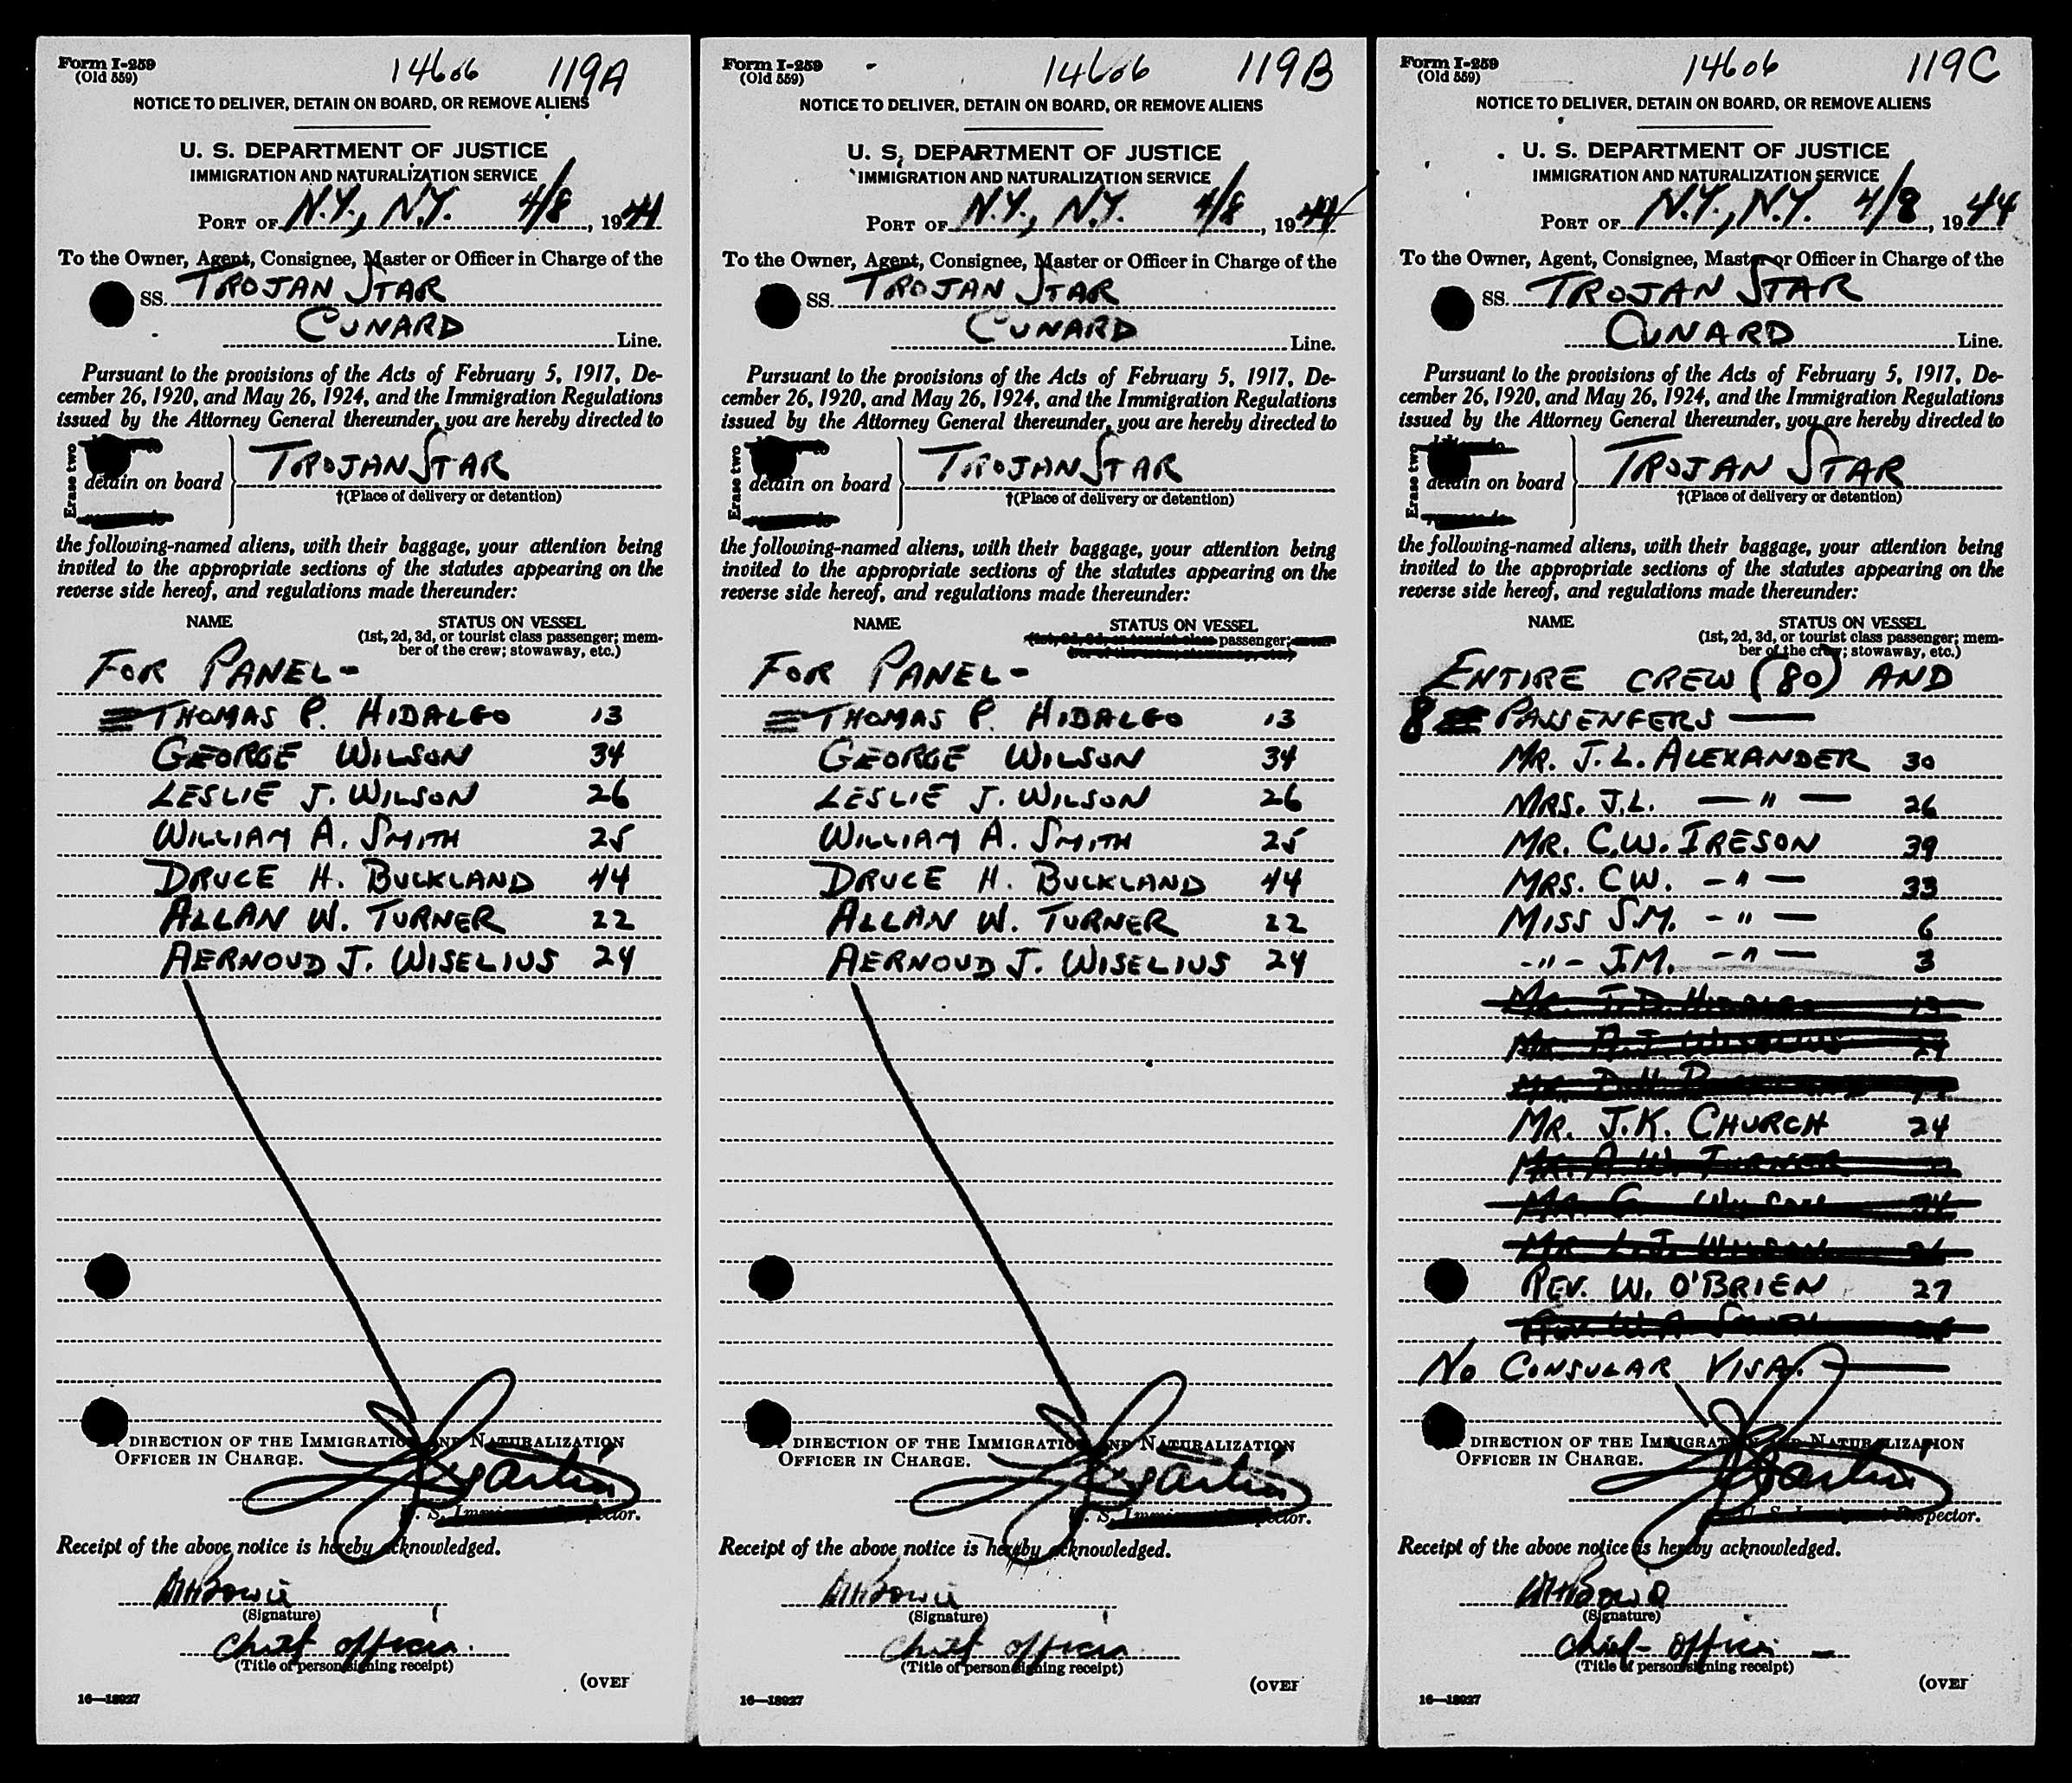 Form I-259
(Old 559)
14606 119A
NOTICE TO DELIVER, DETAIN ON BOARD, OR REMOVE ALIENS
U. S. DEPARTMENT OF JUSTICE
IMMIGRATION AND NATURALIZATION SERVICE
PORT OF N.Y., N.Y. 4/8, 1944
To the Owner, Agent, Consignee, Master or Officer in Charge of the
SS. TROJAN STAR
CUNARD Line.
Pursuant to the provisions of the Acts of February 5, 1917, De-
cember 26, 1920, and May 26, 1924, and the Immigration Regulations
issued by the Attorney General thereunder, you are hereby directed to
Erase two
detain on board } TROJAN STAR
†(Place of delivery or detention)
the following-named aliens, with their baggage, your attention being
invited to the appropriate sections of the statutes appearing on the
reverse side hereof, and regulations made thereunder:
NAME STATUS ON VESSEL
(1st, 2d, 3d, or tourist class passenger; mem-
ber of the crew; stowaway, etc.)
FOR PANEL-
THOMAS P. HIDALGO 13
GEORGE WILSON 34
LESLIE J. WILSON 26
WILLIAM A. SMITH 25
DRUCE H. BUCKLAND 44
ALLAN W. TURNER 22
AERNOUD J. WISELIUS 24
DIRECTION OF THE IMMIGRATION AND NATURALIZATION
OFFICER IN CHARGE.
Receipt of the above notice is hereby acknowledged.
Bowie
(Signature)
Chief officer
(Title of person signing receipt)
(OVER
16—18927
Form I-259
(Old 559)
14606 119B
NOTICE TO DELIVER, DETAIN ON BOARD, OR REMOVE ALIENS
U. S. DEPARTMENT OF JUSTICE
IMMIGRATION AND NATURALIZATION SERVICE
PORT OF N.Y., N.Y. 4/8, 1944
To the Owner, Agent, Consignee, Master or Officer in Charge of the
SS. TROJAN STAR
CUNARD Line.
Pursuant to the provisions of the Acts of February 5, 1917, De-
cember 26, 1920, and May 26, 1924, and the Immigration Regulations
issued by the Attorney General thereunder, you are hereby directed to
Erase two
detain on board } TROJAN STAR
†(Place of delivery or detention)
the following-named aliens, with their baggage, your attention being
invited to the appropriate sections of the statutes appearing on the
reverse side hereof, and regulations made thereunder:
NAME STATUS ON VESSEL
passenger;
FOR PANEL-
THOMAS P. HIDALGO 13
GEORGE WILSON 34
LESLIE J. WILSON 26
WILLIAM A. SMITH 25
DRUCE H. BUCKLAND 44
ALLAN W. TURNER 22
AERNOUD J. WISELIUS 24
DIRECTION OF THE IMMIGRATION AND NATURALIZATION
OFFICER IN CHARGE.
Receipt of the above notice is hereby acknowledged.
Bowie
(Signature)
Chief officer
(Title of person signing receipt)
(OVER
16—18927
Form I-259
(Old 559)
14606 119C
NOTICE TO DELIVER, DETAIN ON BOARD, OR REMOVE ALIENS
U. S. DEPARTMENT OF JUSTICE
IMMIGRATION AND NATURALIZATION SERVICE
PORT OF N.Y., N.Y. 4/8, 1944
To the Owner, Agent, Consignee, Master or Officer in Charge of the
SS. TROJAN STAR
CUNARD Line.
Pursuant to the provisions of the Acts of February 5, 1917, De-
cember 26, 1920, and May 26, 1924, and the Immigration Regulations
issued by the Attorney General thereunder, you are hereby directed to
Erase two
detain on board } TROJAN STAR
†(Place of delivery or detention)
the following-named aliens, with their baggage, your attention being
invited to the appropriate sections of the statutes appearing on the
reverse side hereof, and regulations made thereunder:
NAME STATUS ON VESSEL
(1st, 2d, 3d, or tourist class passenger; mem-
ber of the crew; stowaway, etc.)
ENTIRE CREW (80) AND
8 PASSENGERS —
MR. J.L. ALEXANDER 30
MRS. J.L. — " — 26
MR. C.W. IRESON 39
MRS. C.W. — " — 33
MISS S.M. - " — 6
- " - J.M. - " — 3
MR. J.K. CHURCH 24
REV. W. O'BRIEN 27
NO CONSULAR VISA.
DIRECTION OF THE IMMIGRATION AND NATURALIZATION
OFFICER IN CHARGE.
Receipt of the above notice is hereby acknowledged.
Bowie
(Signature)
Chief officer —
(Title of person signing receipt)
(OVER
16—18927